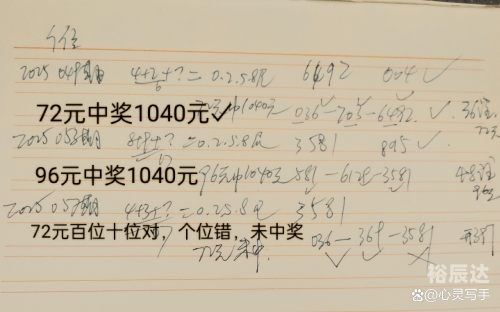 个位
2025049期 4+2+?=0.2.5.8尾 6492 004✓
72元中奖1040元✓ 72元中1040元 036-705-6492.✓ 36注 72元
2025053期 8+8+?=0.2.5.8尾 3581 895✓
96元中奖1040元 96元中1040元 581-6124-3581 48注
2025057期 4+3+?=0.2.5.8尾 3581
72元百位十位对，个位错，未中奖
72元未中 036-369-3581
裕辰达
@心灵写手